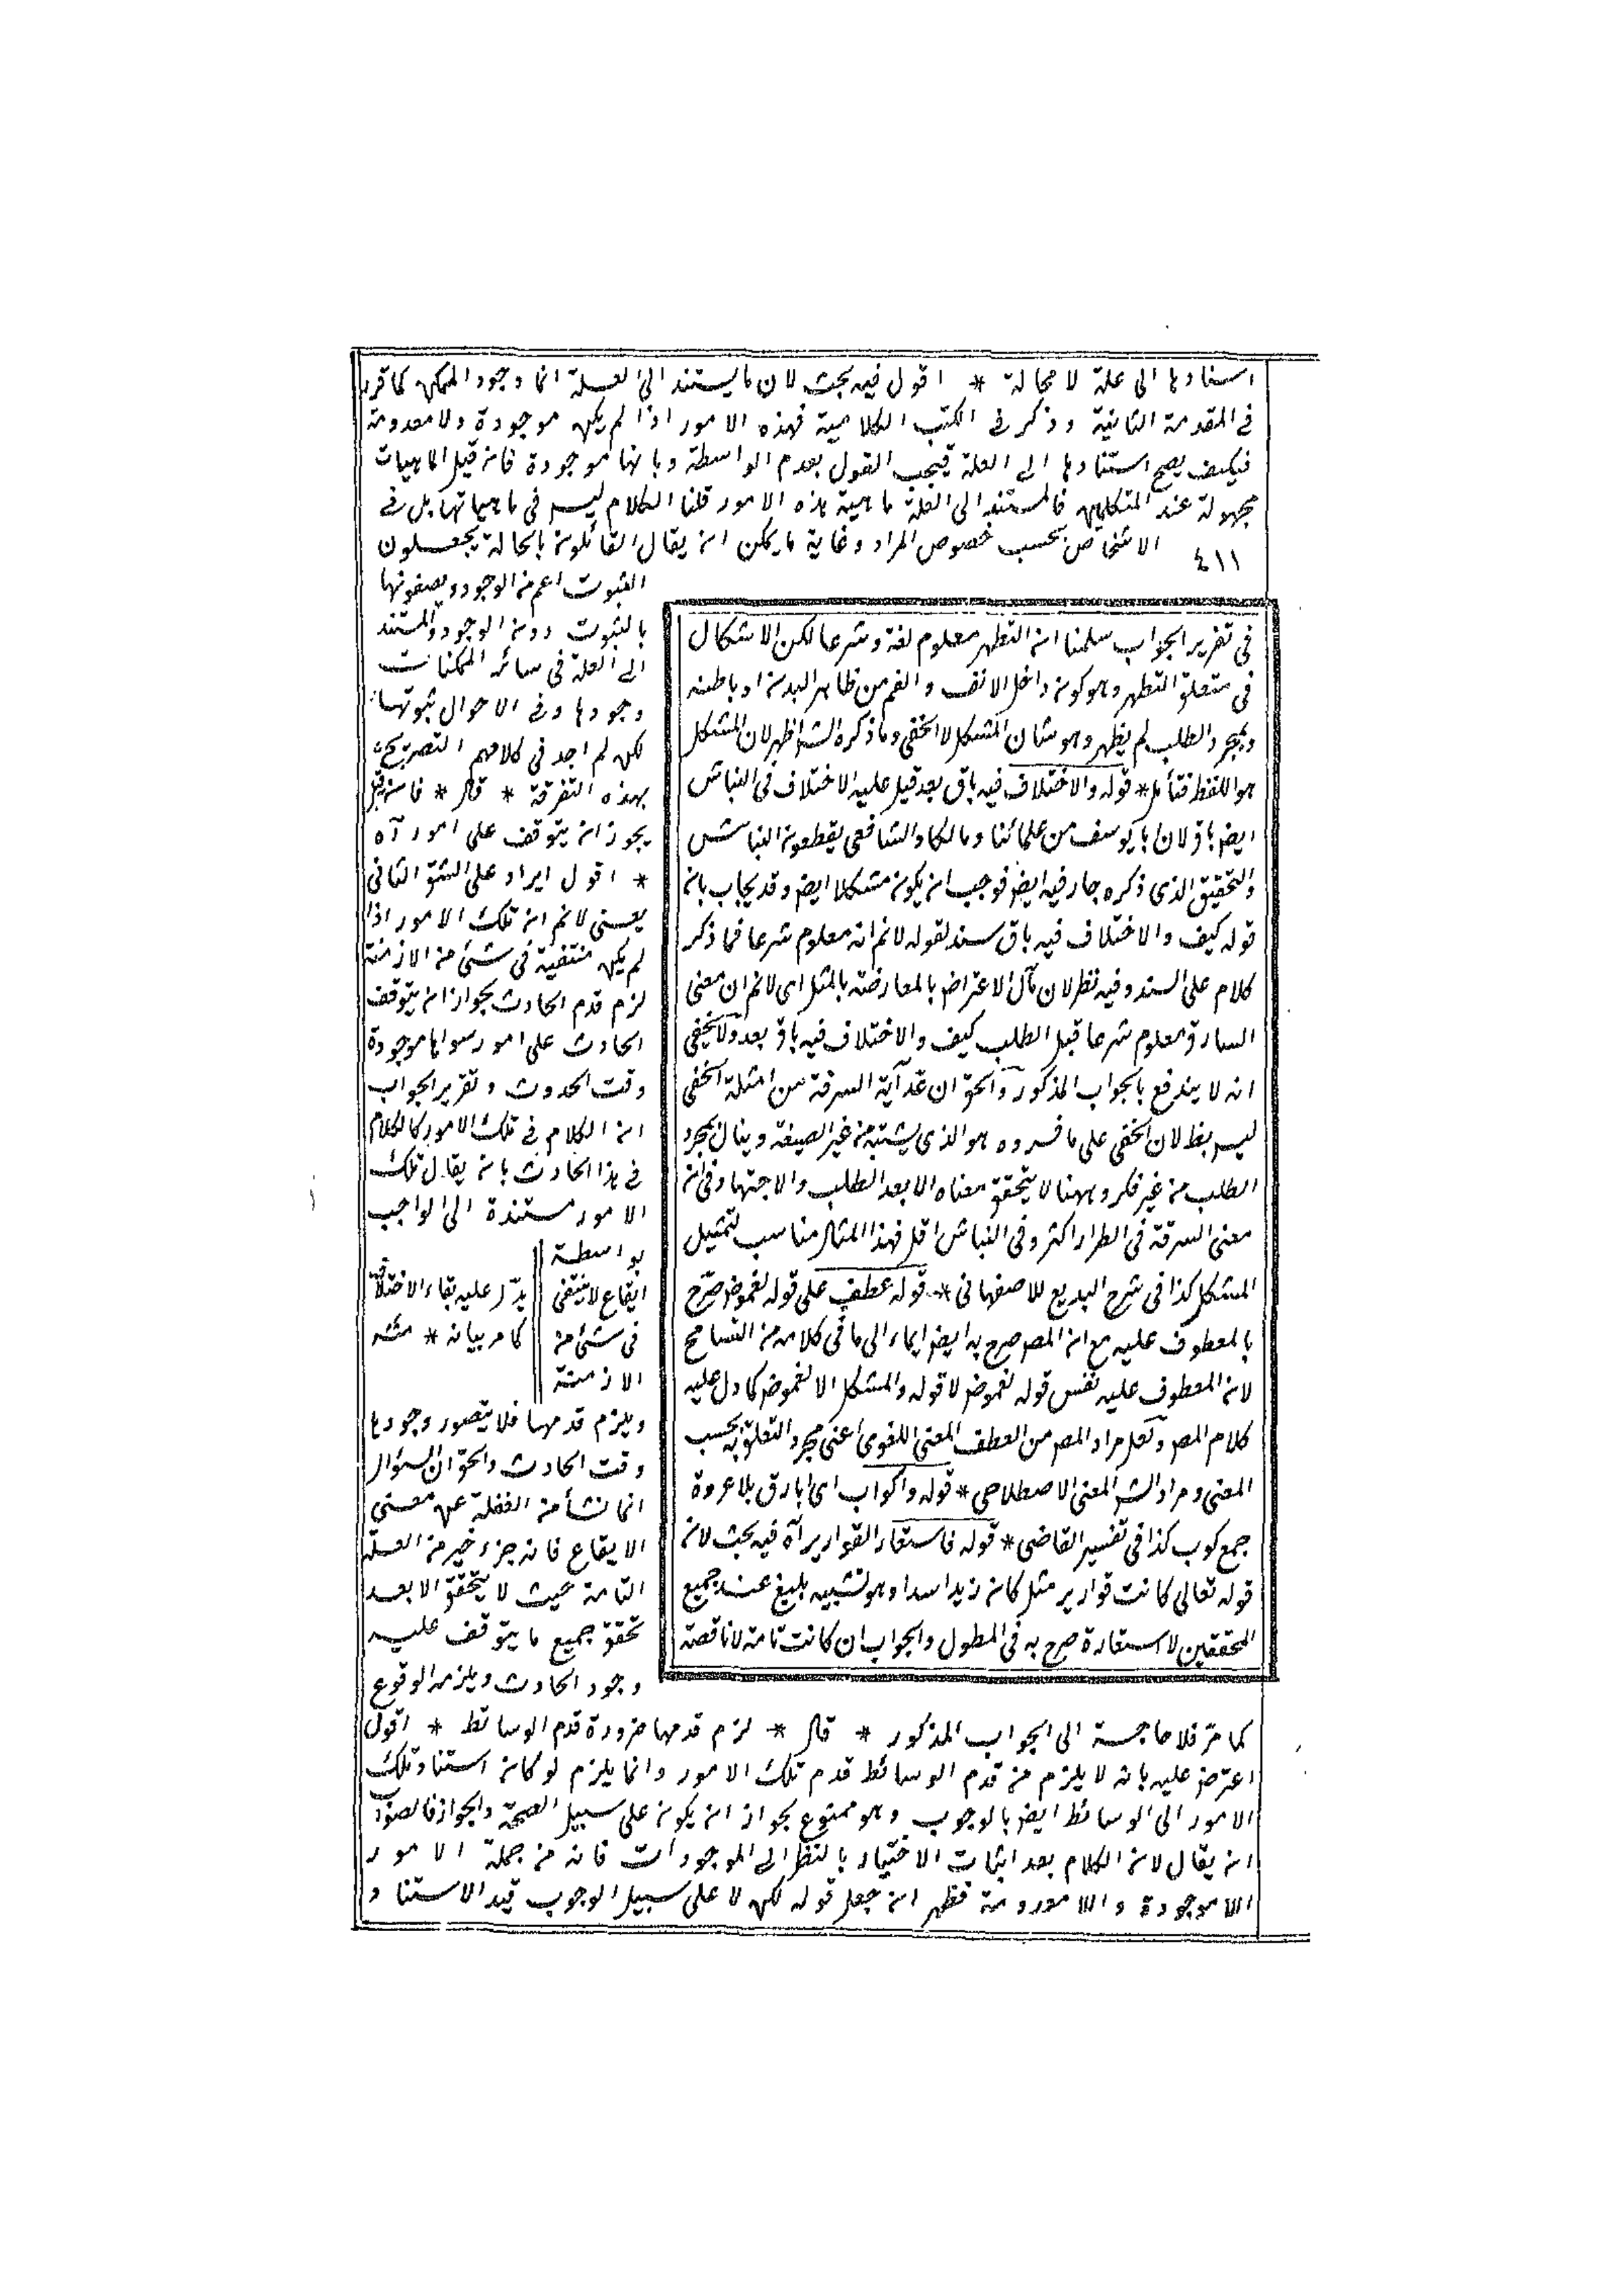 استنادها الى علة لا محالة * اقول فيه بحث لان ما يستند الى العلة انما وجود الممكن كما قرر
فى المقدمة الثانية وذكر فى الكتب الكلامية فهذه الامور اذا لم يكن موجودة ولا معدومة
فيكيف يصح استنادها الى العلة فيجب القول بعدم الواسطة وبانها موجودة فان قيل الماهيات
مجهولة عند المتكلمين فالمستند الى العلة ماهية هذه الامور قلنا الكلام ليس فى ماهياتها بل فى
الاشخاص بحسب خصوص المراد وغاية ما يمكن ان يقال القائلون بالحالة يجعلون
٤١١
الثبوت اعم من الوجود ويصفونها
بالثبوت دون الوجود والمستند
الى العلة فى سائر الممكنات
وجودها وفى الاحوال ثبوتها
لكن لم اجد فى كلامهم التصريح
بهذه التفرقة * قال * فان قيل
يجوز ان يتوقف على امور آه
* اقول ايراد على الشق الثانى
يعنى لانم ان تلك الامور اذا
لم يكن منتفية فى شئ من الازمنة
لزم قدم الحادث لجواز ان يتوقف
الحادث على امور سواها موجودة
وقت الحدوث وتقرير الجواب
ان الكلام فى تلك الامور كالكلام
فى هذا الحادث بان يقال تلك
الامور مستندة الى الواجب
بواسطة
ايقاع لا ينتفى
فى شئ من
الازمنة
ويلزم قدمها فلا يتصور وجودها
وقت الحادث والحق ان السؤال
انما نشأ من الغفلة عن معنى
الايقاع فانه جزء اخير من العلة
التامة بحيث لا يتحقق الا بعد
تحقق جميع ما يتوقف عليه
وجود الحادث ويلزمه الوقوع
كما مرّ فلا حاجة الى الجواب المذكور * قال * لزم قدمها ضرورة قدم الوسائط * اقول
اعترض عليه بانه لا يلزم من قدم الوسائط قدم تلك الامور وانما يلزم لو كان استناد تلك
الامور الى الوسائط ايض بالوجوب وهو ممنوع لجواز ان يكون على سبيل الصحة والجواز فالصواب
ان يقال لان الكلام بعد اثبات الاختيار بالنظر الى الموجودات فانه من جملة الامور
اللاموجودة واللامعدومة فظهر ان جعل قوله لكن لا على سبيل الوجوب قيد الاستناد
فى تقرير الجواب سلمنا ان التطهر معلوم لغة وشرعا لكن الاشكال
فى متعلق التطهر وهو كون داخل الانف والفم من ظاهر البدن او باطنه
وبمجرد الطلب لم يظهر وهو شان المشكل لا الخفى وما ذكره الشر اظهر لان المشكل
هو اللفظ فتأمل * قوله والاختلاف فيه باق بعد قيل عليه الاختلاف فى النباش
ايض باق لان ابا يوسف من علمائنا ومالكا والشافعى يقطعون النباش
والتحقيق الذى ذكره جار فيه ايض فوجب ان يكون مشكلا ايض وقد يجاب بان
قوله كيف والاختلاف فيه باق سند لقوله لانم انه معلوم شرعا فما ذكر
كلام على السند وفيه نظر لان مآل الاعتراض بالمعارضة بالمثل اى لانم ان معنى
السارق معلوم شرعا قبل الطلب كيف والاختلاف فيه باق بعد ولا يخفى
انه لا يندفع بالجواب المذكور والحق ان عد آية السرقة من امثلة الخفى
ليس بظ لان الخفى على ما فسروه هو الذى يشتبه من غير الصيغة وينال بمجرد
الطلب من غير فكر وههنا لا يتحقق معناه الا بعد الطلب والاجتهاد فى ان
معنى السرقة فى الطرار اكثر وفى النباش اقل فهذا المثال مناسب لتمثيل
المشكل كذا فى شرح البديع للاصفهانى * قوله عطف على قوله لغموض صرّح
بالمعطوف عليه مع ان المصر صرح به ايض ايماء الى ما فى كلامه من التسامح
لان المعطوف عليه نفس قوله لغموض لا قوله والمشكل الا لغموض كما دل عليه
كلام المصر ولعل مراد المصر من العطف المعنى اللغوى اعنى مجرد التعلق به بحسب
المعنى ومراد الشر المعنى الاصطلاحى * قوله واكواب اى ابارق بلا عروة
جمع كوب كذا فى تفسير القاضى * قوله فاستعار القوارير آه فيه بحث لان
قوله تعالى كانت قوارير مثل كان زيد اسدا وهو تشبيه بليغ عند جميع
المحققين لا استعارة صرح به فى المطول والجواب ان كانت تامة لا ناقصة
يدّل عليه بقاء الاختلاف
كما مر بيانه * منه